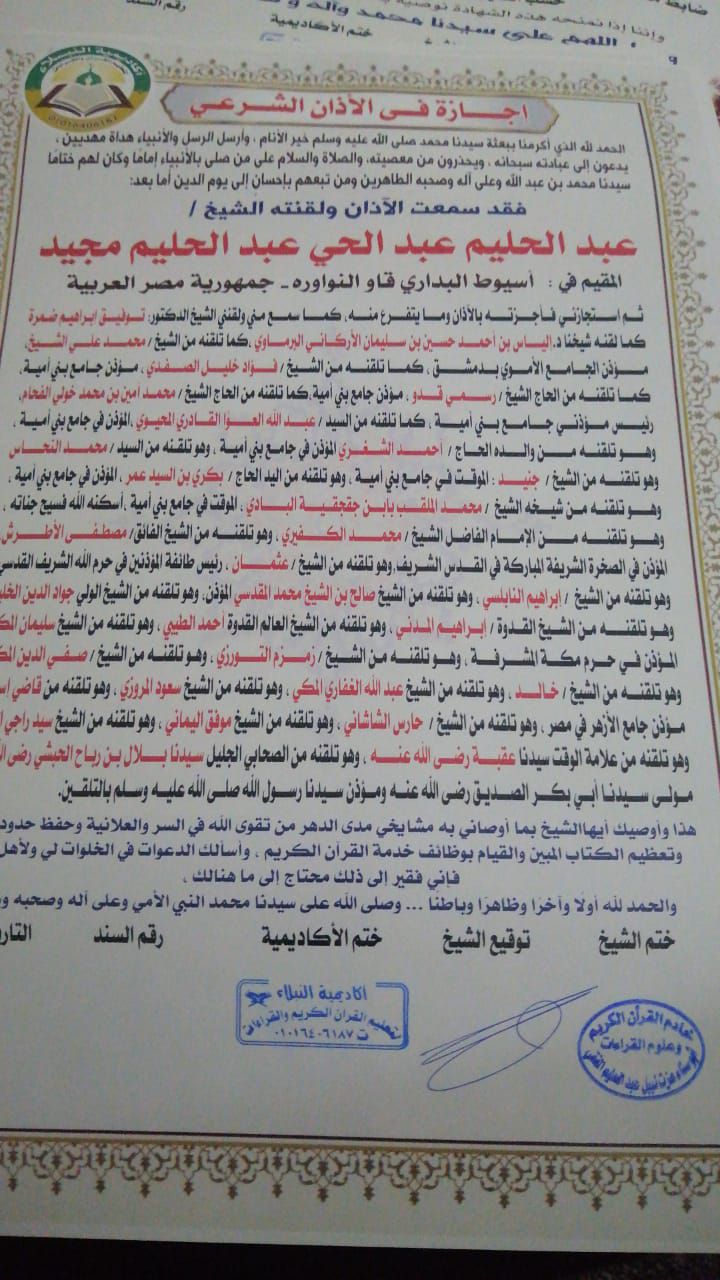 وإننا إذا نمنحه هذه الشهادة نوصيه
اللهم على سيدنا محمد وآله و
ختم الأكاديمية
رقم السند
أكاديمية النبلاء
01016406187
اجازة فى الأذان الشرعي
الحمد لله الذي أكرمنا ببعثة سيدنا محمد صلى الله عليه وسلم خير الأنام ، وأرسل الرسل والأنبياء هداة مهديين ،
يدعون إلى عبادته سبحانه ، ويحذرون من معصيته، والصلاة والسلام علي من صلي بالأنبياء إماما وكان لهم ختاما
سيدنا محمد بن عبد الله وعلى آله وصحبه الطاهرين ومن تبعهم بإحسان إلى يوم الدين أما بعد:
فقد سمعت الآذان ولقنته الشيخ /
عبد الحليم عبد الحي عبد الحليم مجيد
المقيم في : أسيوط البداري قاو النواوره - جمهورية مصر العربية
ثم استجازني فأجزته بالأذان وما يتفرع منه، كما سمع مني ولقنني الشيخ الدكتور: توفيق ابراهيم ضمرة
كما لقنه شيخنا د. الياس بن أحمد حسين بن سليمان الأركاني البرماوي ،كما تلقنه من الشيخ / محمد علي الشيخ،
مؤذن الجامع الأموي بدمشق ، كما تلقنه من الشيخ / فؤاد خليل الصفدي ، مؤذن جامع بني أمية،
كما تلقنه من الحاج الشيخ / رسمي قدو ، مؤذن جامع بني أمية،كما تلقنه من الحاج الشيخ / محمد أمين بن محمد خولي الفحام،
رئيس مؤذني جامع بني أمية ، كما تلقنه من السيد / عبد الله العوا القادري المحيوي ،المؤذن في جامع بني أمية ،
وهو تلقنه من والده الحاج / أحمد الشغري المؤذن في جامع بني أمية ، وهو تلقنه من السيد / محمد النحاس
وهو تلقنه من الشيخ / جنيد : الموقت في جامع بني أمية ، وهو تلقنه من اليد الحاج / بكري بن السيد عمر ، المؤذن في جامع بني أمية ،
وهو تلقنه من شيخه الشيخ / محمد الملقب بابن جقجقية البادي ، الموقت في جامع بني أمية ، أسكنه الله فسيح جناته ،
وهو تلقنه من الإمام الفاضل الشيخ / محمد الكفيري ، وهو تلقنه من الشيخ الفائق/ مصطفى الأطرش،
المؤذن في الصخرة الشريفة المباركة في القدس الشريف، وهو تلقنه من الشيخ / عثمان ، رئيس طائفة المؤذنين في حرم الله الشريف القدسي
وهو تلقنه من الشيخ / إبراهيم النابلسي ، وهو تلقنه من الشيخ صالح بن الشيخ محمد المقدسي المؤذن، وهو تلقنه من الشيخ الولي جواد الدين
وهو تلقنه من الشيخ القدوة / إبراهيم المدني ، وهو تلقنه من الشيخ العالم القدوة أحمد الطيبي ، وهو تلقنه من الشيخ سليمان
المؤذن في حرم مكة المشرفة ، وهو تلقنه من الشيخ / زمزم التورزي ، وهو تلقنه من الشيخ / صفي الدين
وهو تلقنه من الشيخ / خالد ، وهو تلقنه من الشيخ عبد الله الغفاري المكي ، وهو تلقنه من الشيخ سعود المروزي ، وهو تلقنه من قاضي
مؤذن جامع الأزهر في مصر ، وهو تلقنه من الشيخ / حارس الشاشاني ، وهو تلقنه من الشيخ موفق اليماني ، وهو تلقنه من الشيخ سيد راجي
وهو تلقنه من علامة الوقت سيدنا عقبة رضى الله عنه ، وهو تلقنه من الصحابي الجليل سيدنا بلال بن رباح الحبشي رضى
مولى سيدنا أبي بكر الصديق رضى الله عنه ومؤذن سيدنا رسول الله صلى الله عليه وسلم بالتلقين.
هذا وأوصيك أيهاالشيخ بما أوصاني به مشايخي مدى الدهر من تقوى الله في السر والعلانية وحفظ حدود
وتعظيم الكتاب المبين والقيام بوظائف خدمة القرآن الكريم ، وأسألك الدعوات في الخلوات لي ولأهل
فإني فقير إلى ذلك محتاج إلى ما هنالك ،
والحمد لله أولا وآخرا وظاهرا وباطنا ... وصلى الله على سيدنا محمد النبي الأمي وعلى آله وصحبه
ختم الشيخ
توقيع الشيخ
ختم الأكاديمية
رقم السند
أكاديمية النبلاء
لتعليم القرآن الكريم والقراءات
ت ٠١٠١٦٤٠٦١٨٧
خادم القرآن الكريم
وعلوم القراءات